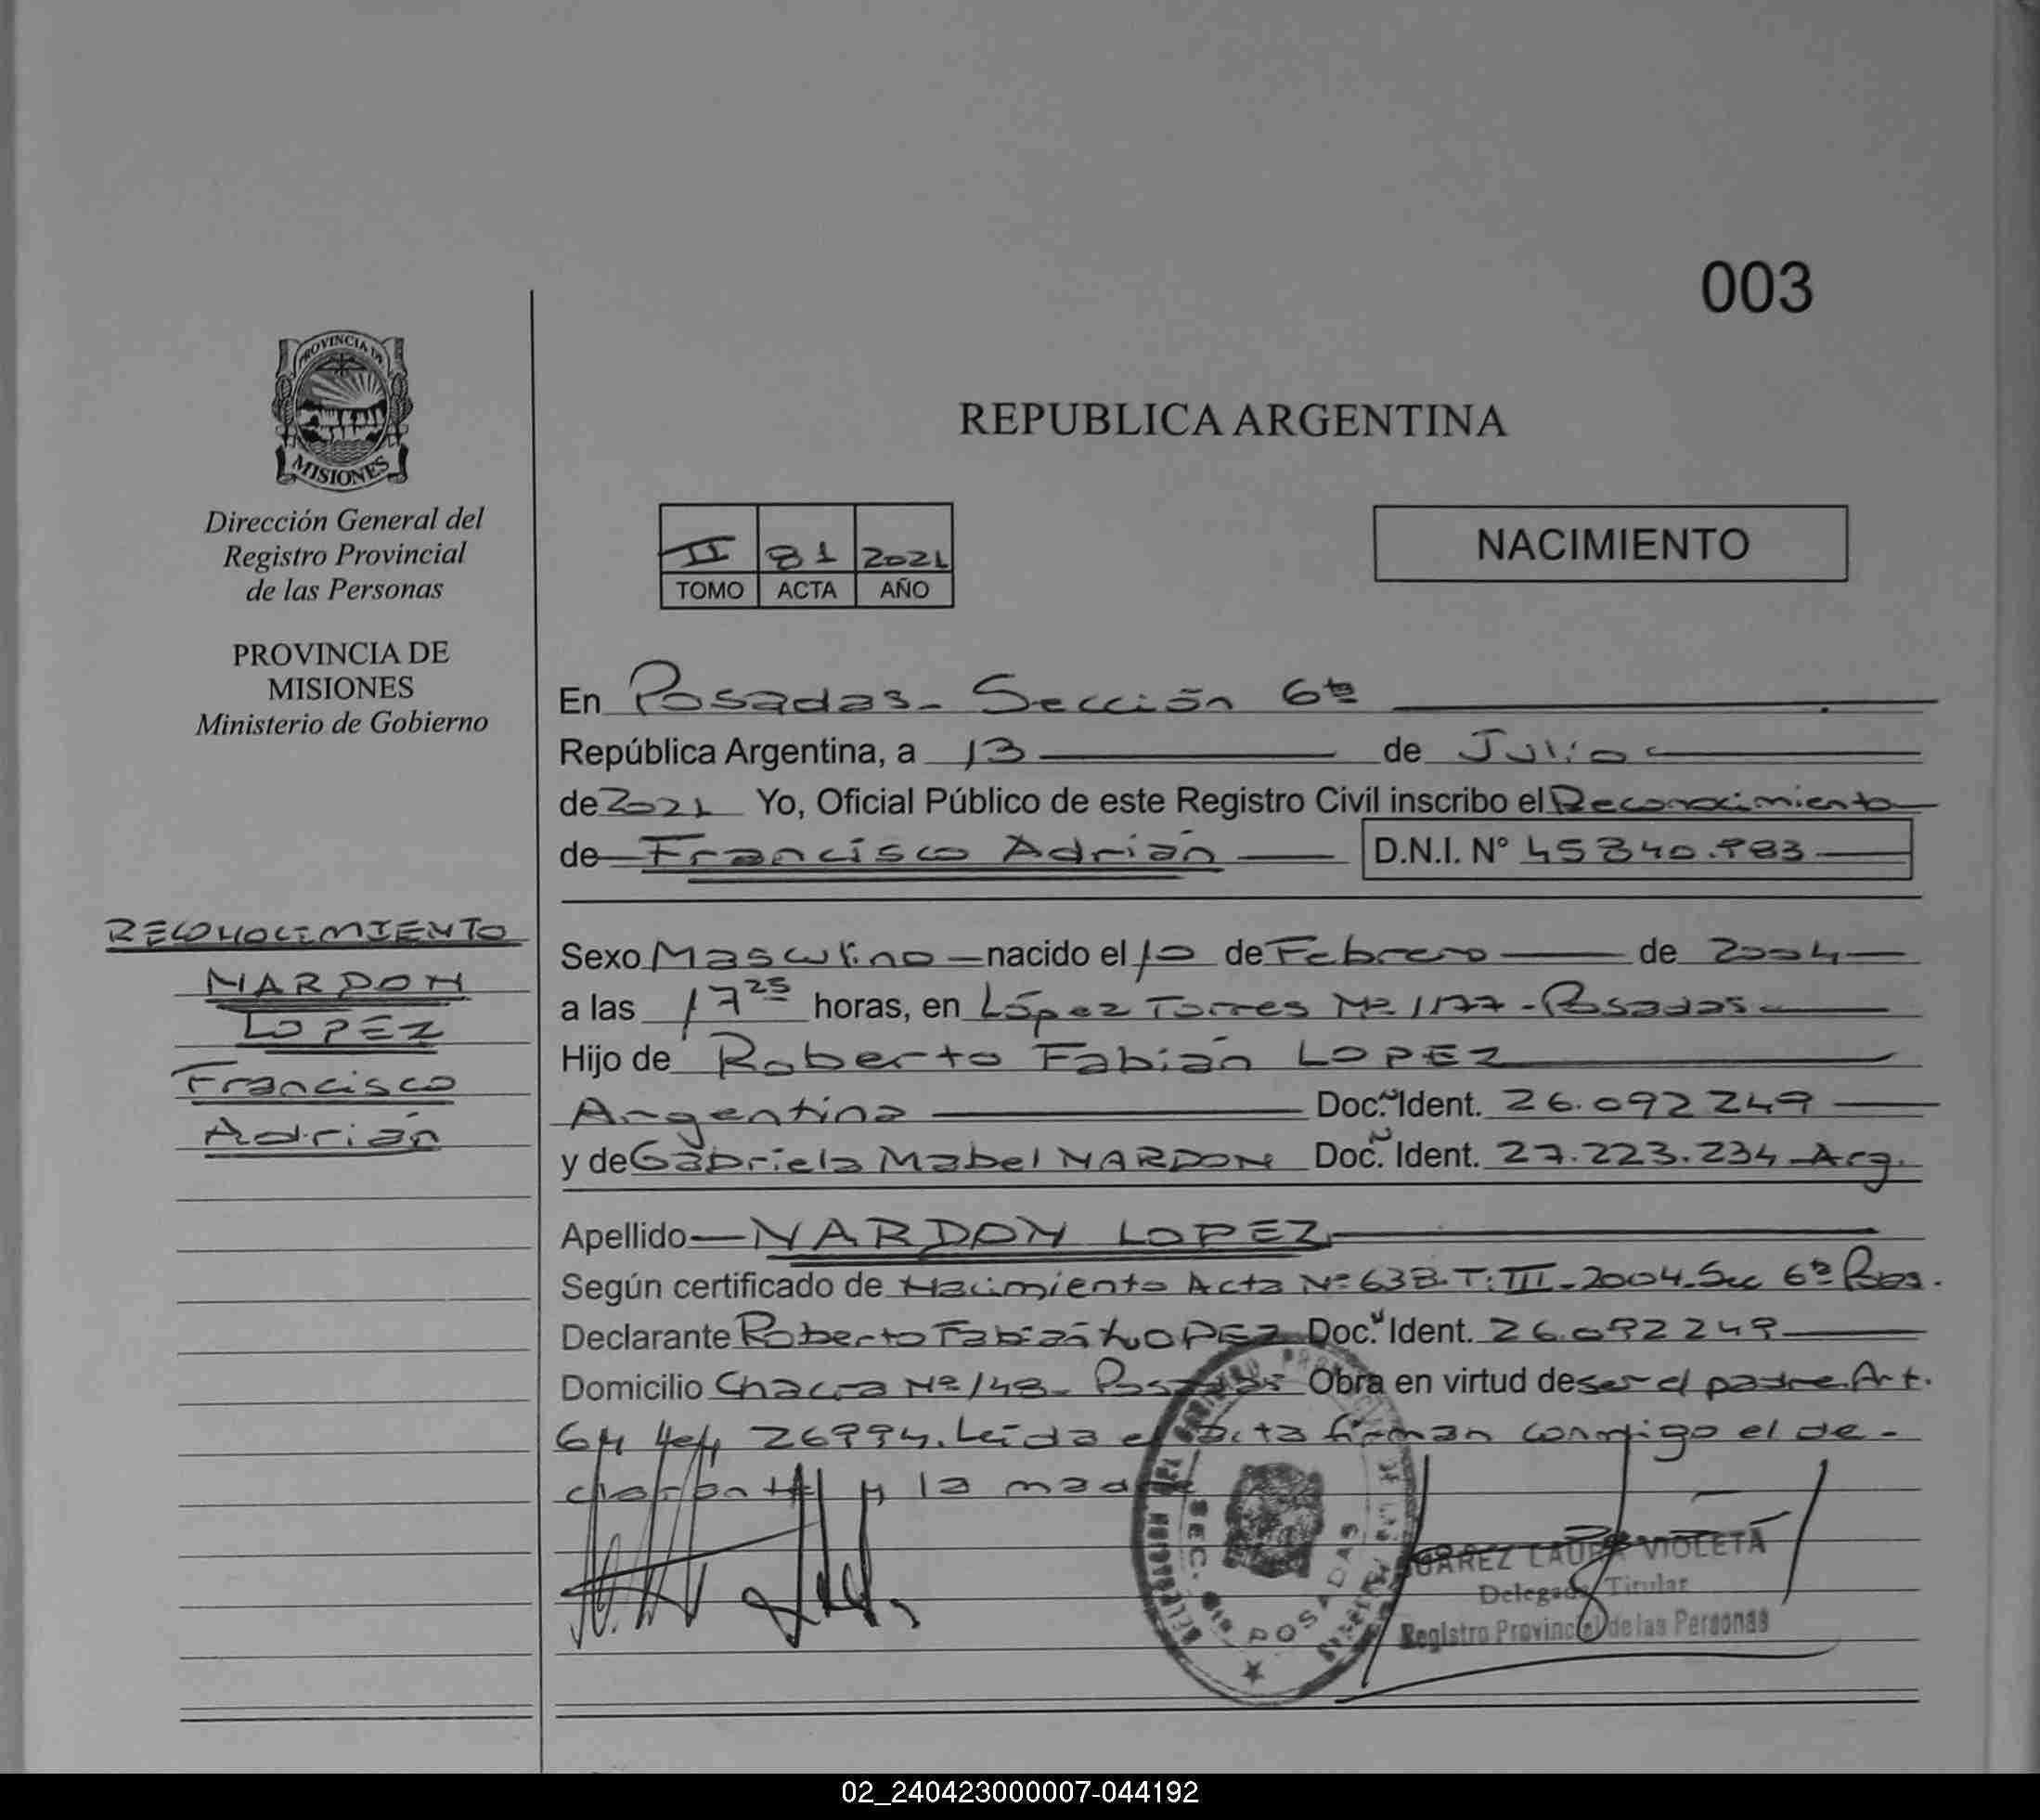 003
PROVINCIA DE
MISIONES
Dirección General del
Registro Provincial
de las Personas
PROVINCIA DE
MISIONES
Ministerio de Gobierno
RECONOCIMIENTO
NARDON
LOPEZ
Francisco
Adrián
REPUBLICA ARGENTINA
II 81 2021
TOMO ACTA AÑO
NACIMIENTO
En Posadas - Sección 6ta
República Argentina, a 13 de Julio
de 2021 Yo, Oficial Público de este Registro Civil inscribo el Reconocimiento
de Francisco Adrián D.N.I. N° 45840.983
Sexo Masculino nacido el 10 de Febrero de 2004
a las 17 25 horas, en López Torres Nº 1177 - Posadas
Hijo de Roberto Fabián LOPEZ
Argentina Doc. Ident. 26.092249
y de Gabriela Mabel NARDON Doc. Ident. 27.223.234 Arg.
Apellido NARDON LOPEZ
Según certificado de Nacimiento Acta Nº 638. T: III - 2004. Sec 6ta Pdas.
Declarante Roberto Fabián LOPEZ Doc. Ident. 26.092249
Domicilio Chacra Nº 148 - Posadas Obra en virtud de ser el padre. Art.
64 Ley 26994. Leida el acta firman conmigo el de-
clarante y la madre
SEC. POSADAS
LAURA VIOLETA
Delegada Titular
Registro Provincial de las Personas
02_240423000007-044192